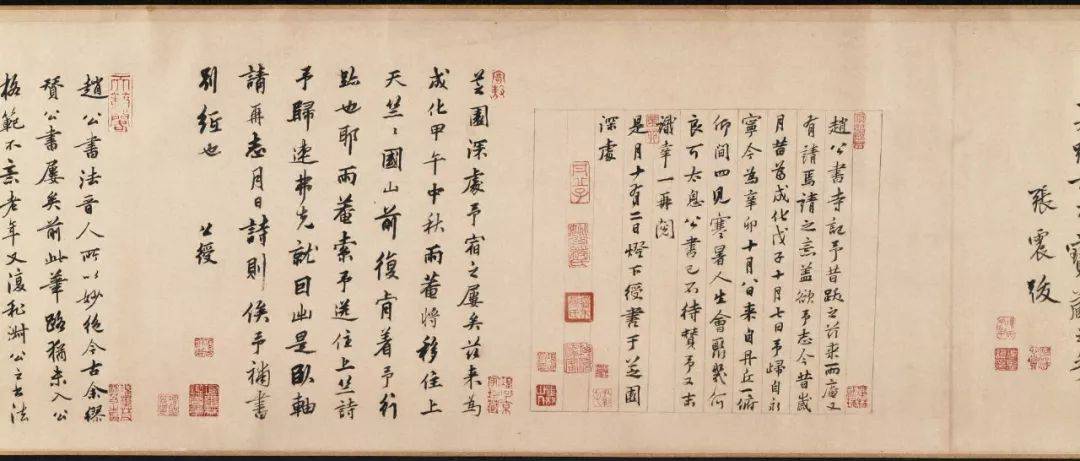 張震跋
趙公書寺記予昔跋之茲來雨庵又
有請焉請之意蓋欲予志今昔歲
月昔當成化戊子十月七日予歸自永
寧今為辛卯十月八日來自丹丘一俯
仰間四見寒暑人生會聚幾何
良可太息公書已不待贊予又
識幸一再閱
是月十有二日燈下綬書于芝園
深處
芝園深處予宿之屢矣茲來為
成化甲午中秋雨菴將移住上
天竺〻國山前復肯着予行
跡也耶雨菴索予送住上竺詩
予歸速弗先就因出是臥軸
請再志月日詩則俟予補書
別紙也 公綬
趙公書法晉人所以妙絕今古余繆
賛公書屢矣前此華路猶未入公
格範不意老年又復私淑公之書法